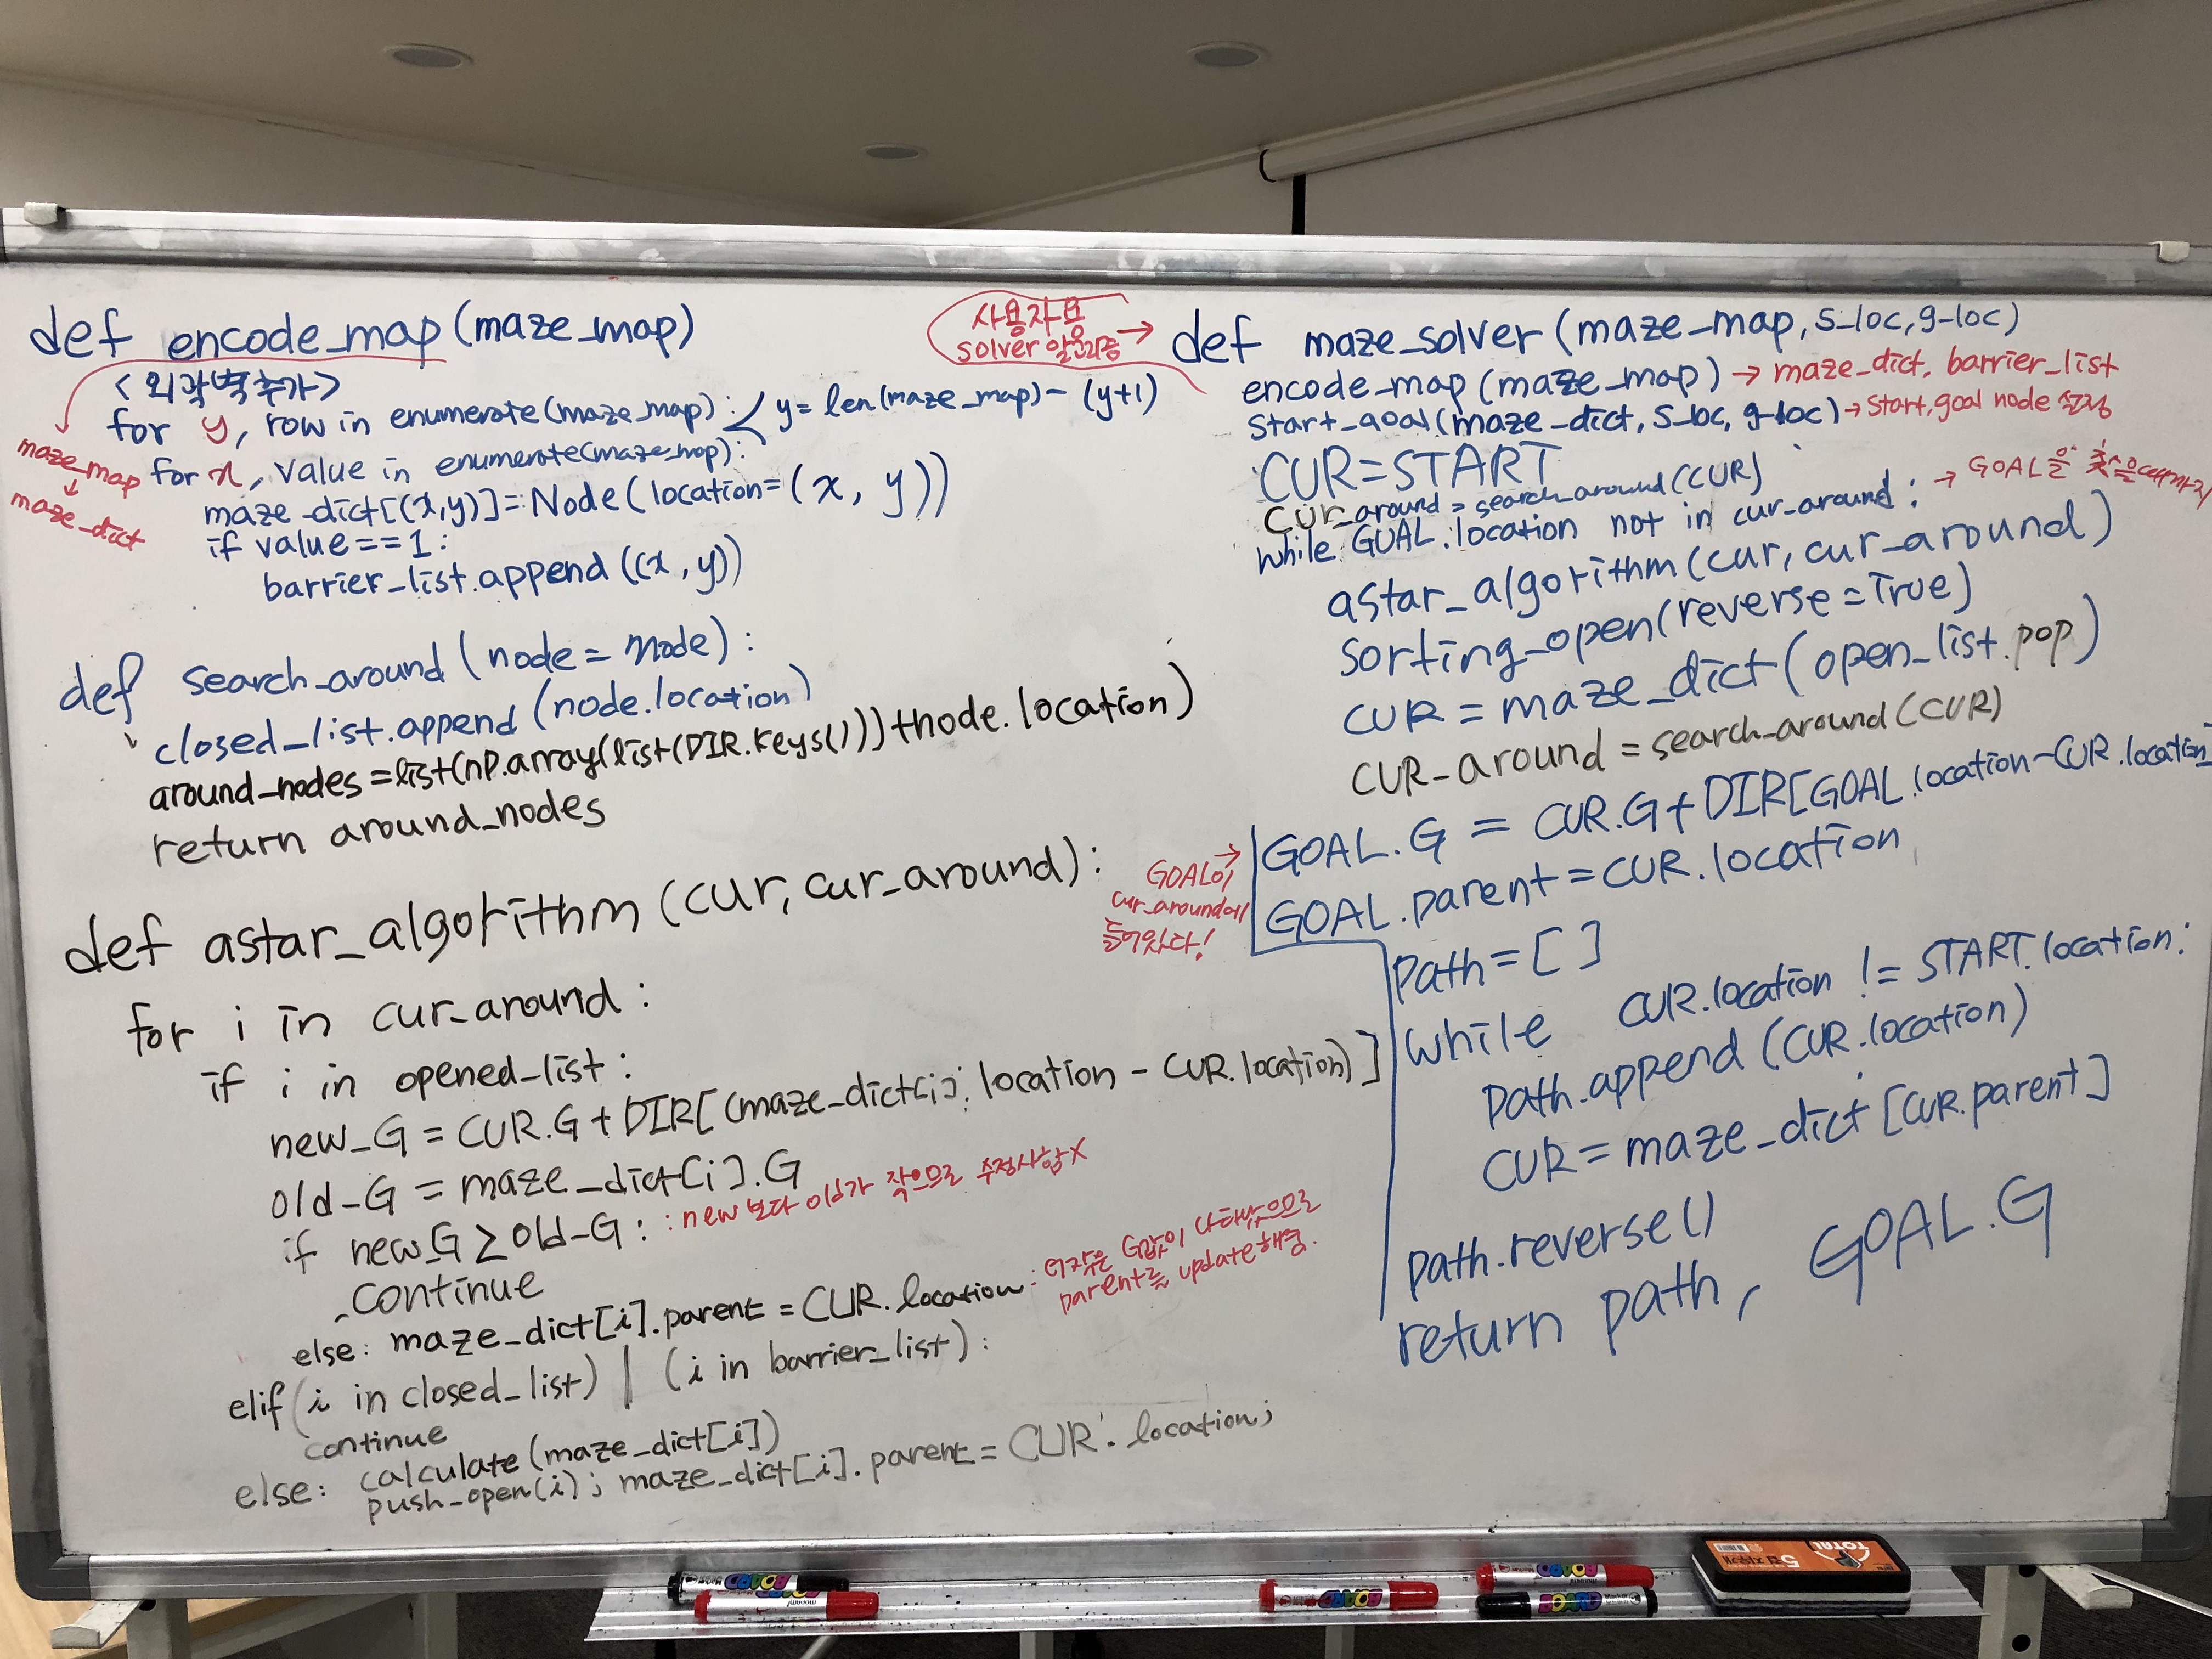 def encode_map(maze_map)
<외곽벽추가>
for y, row in enumerate(maze_map): y = len(maze_map) - (y+1)
maze_map
↓
maze_dict
for x, value in enumerate(maze_map):
maze_dict[(x,y)] = Node(location=(x, y))
if value==1:
barrier_list.append((x,y))
def search_around(node=node):
closed_list.append(node.location)
around_nodes=list(np.array(list(DIR.keys()))+node.location)
return around_nodes
def astar_algorithm(cur, cur_around):
for i in cur_around:
if i in opened_list:
new_G = CUR.G + DIR[(maze_dict[i].location - CUR.location)]
old_G = maze_dict[i].G
if new_G ≥ old_G: : new보다 old가 작으므로 수정사항X
continue
else: maze_dict[i].parent = CUR.location : 더작은 G값이 나타났으므로
parent를 update해줌.
elif (i in closed_list) | (i in barrier_list):
continue
else: calculate(maze_dict[i])
push_open(i); maze_dict[i].parent = CUR.location;
사용자용
solver 알고리즘 →
def maze_solver(maze_map, s_loc, g_loc)
encode_map(maze_map) → maze_dict, barrier_list
start_goal(maze_dict, s_loc, g_loc) → start, goal node 설정
CUR=START
cur_around = search_around(CUR)
while GOAL.location not in cur_around: → GOAL을 찾을때까지
astar_algorithm(cur, cur_around)
sorting_open(reverse=True)
CUR = maze_dict(open_list.pop)
CUR_around = search_around(CUR)
GOAL이 →
cur_around에
들어왔다!
GOAL.G = CUR.G + DIR[GOAL.location-CUR.location]
GOAL.parent = CUR.location
path=[]
while CUR.location != START.location:
path.append(CUR.location)
CUR = maze_dict[CUR.parent]
path.reverse()
return path, GOAL.G
BOARD
BOARD
BOARD
BOARD
BOARD
TOTAL